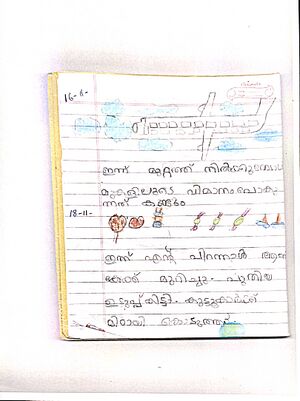 16-6-
ഇന്ന് മുറ്റത്ത് നിൽക്കുമ്പോൾ
മുകളിലൂടെ വിമാനം പോകു
ന്നത് കണ്ടു
18-11-
ഇന്ന് എന്റെ പിറന്നാൾ ആണ്
കേക്ക് മുറിച്ചു. പുതിയ
ഉടുപ്പ് കിട്ടി. കൂട്ടുകാർക്ക്
മിഠായി കൊടുത്തു.